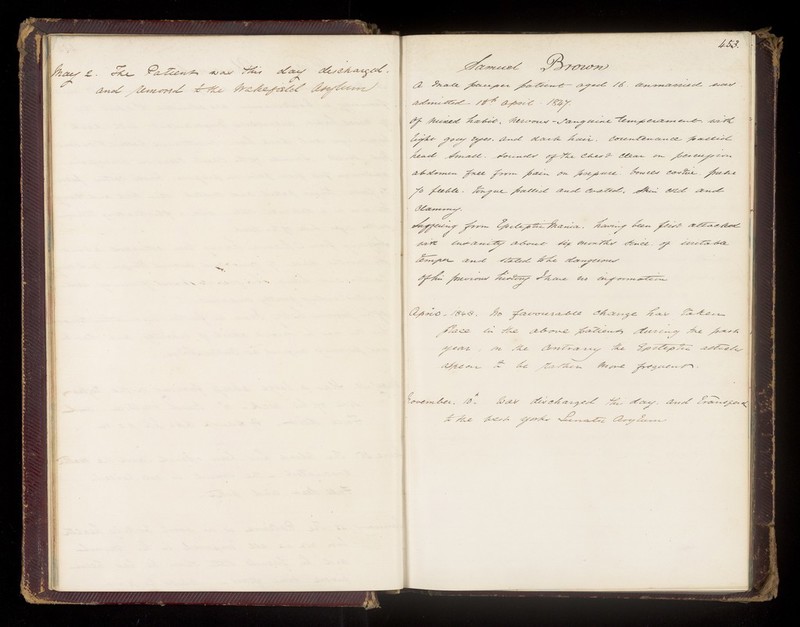 May 2. The Patient was this day discharged.
and removed to the Wakefield Asylum
453.
Samuel Brown
A male pauper patient aged 16 unmarried was
admitted 18th April 1847
Of mixed habit, nervous-sanguine temperament with
light grey eyes and dark hair. Countenance pallid
head small. sounds of the chest clear on percussion
abdomen free from pain on pressure. bowels costive pulse
70 feeble. tongue pallid and coated, skin cold and
clammy.
Suffering from Epileptic Mania. having been first attacked
with insanity about six months since of irritable
temper and stated to be dangerous
Of his previous history I have no information
April. 1848. No favourable change has taken
place in the above patient during the past
year, on the contrary the Epileptic attacks
appear to be rather more frequent.
November. Was discharged this day and transferred
to the West York Lunatic Asylum